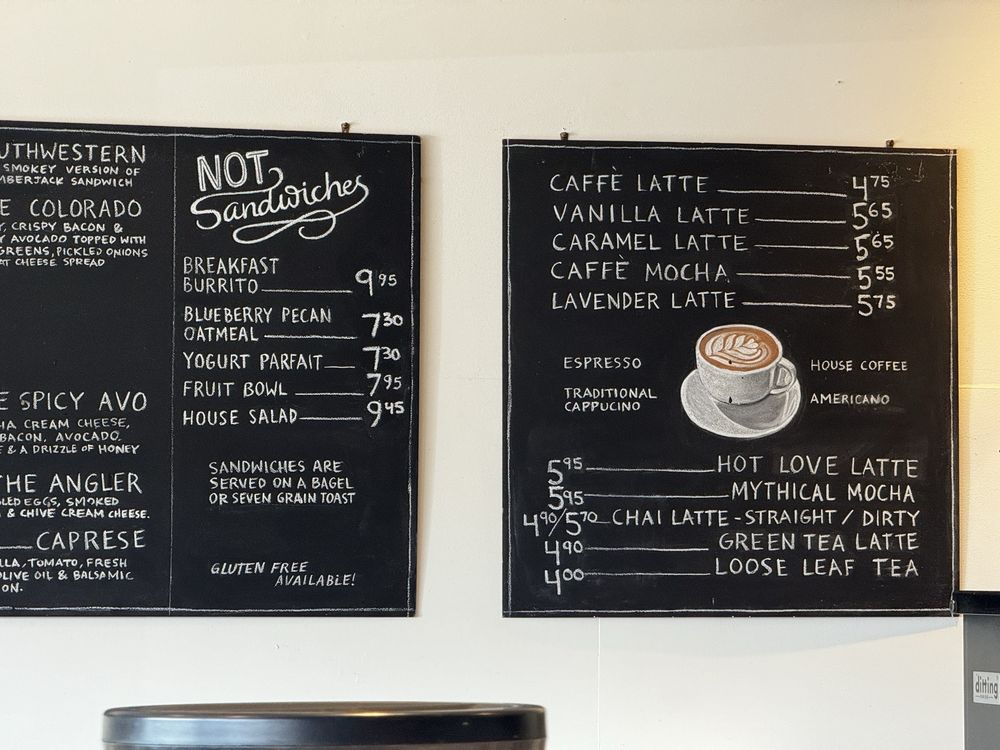 UTHWESTERN
SMOKEY VERSION OF
MBERJACK SANDWICH
E COLORADO
Y, CRISPY BACON &
Y AVOCADO TOPPED WITH
GREENS, PICKLED ONIONS
AT CHEESE SPREAD
E SPICY AVO
HA CREAM CHEESE,
BACON, AVOCADO.
E & A DRIZZLE OF HONEY
THE ANGLER
LED EGGS, SMOKED
& CHIVE CREAM CHEESE.
CAPRESE
LLA, TOMATO, FRESH
OLIVE OIL & BALSAMIC
ON.
NOT
Sandwiches
BREAKFAST
BURRITO 9 95
BLUEBERRY PECAN
OATMEAL 7 30
YOGURT PARFAIT 7 30
FRUIT BOWL 7 95
HOUSE SALAD 9 45
SANDWICHES ARE
SERVED ON A BAGEL
OR SEVEN GRAIN TOAST
GLUTEN FREE
AVAILABLE!
CAFFÈ LATTE 4 75
VANILLA LATTE 5 65
CARAMEL LATTE 5 65
CAFFÈ MOCHA 5 55
LAVENDER LATTE 5 75
ESPRESSO
TRADITIONAL
CAPPUCINO
HOUSE COFFEE
AMERICANO
5 95 HOT LOVE LATTE
5 95 MYTHICAL MOCHA
4 90/5 70 CHAI LATTE - STRAIGHT / DIRTY
4 90 GREEN TEA LATTE
4 00 LOOSE LEAF TEA
ditting